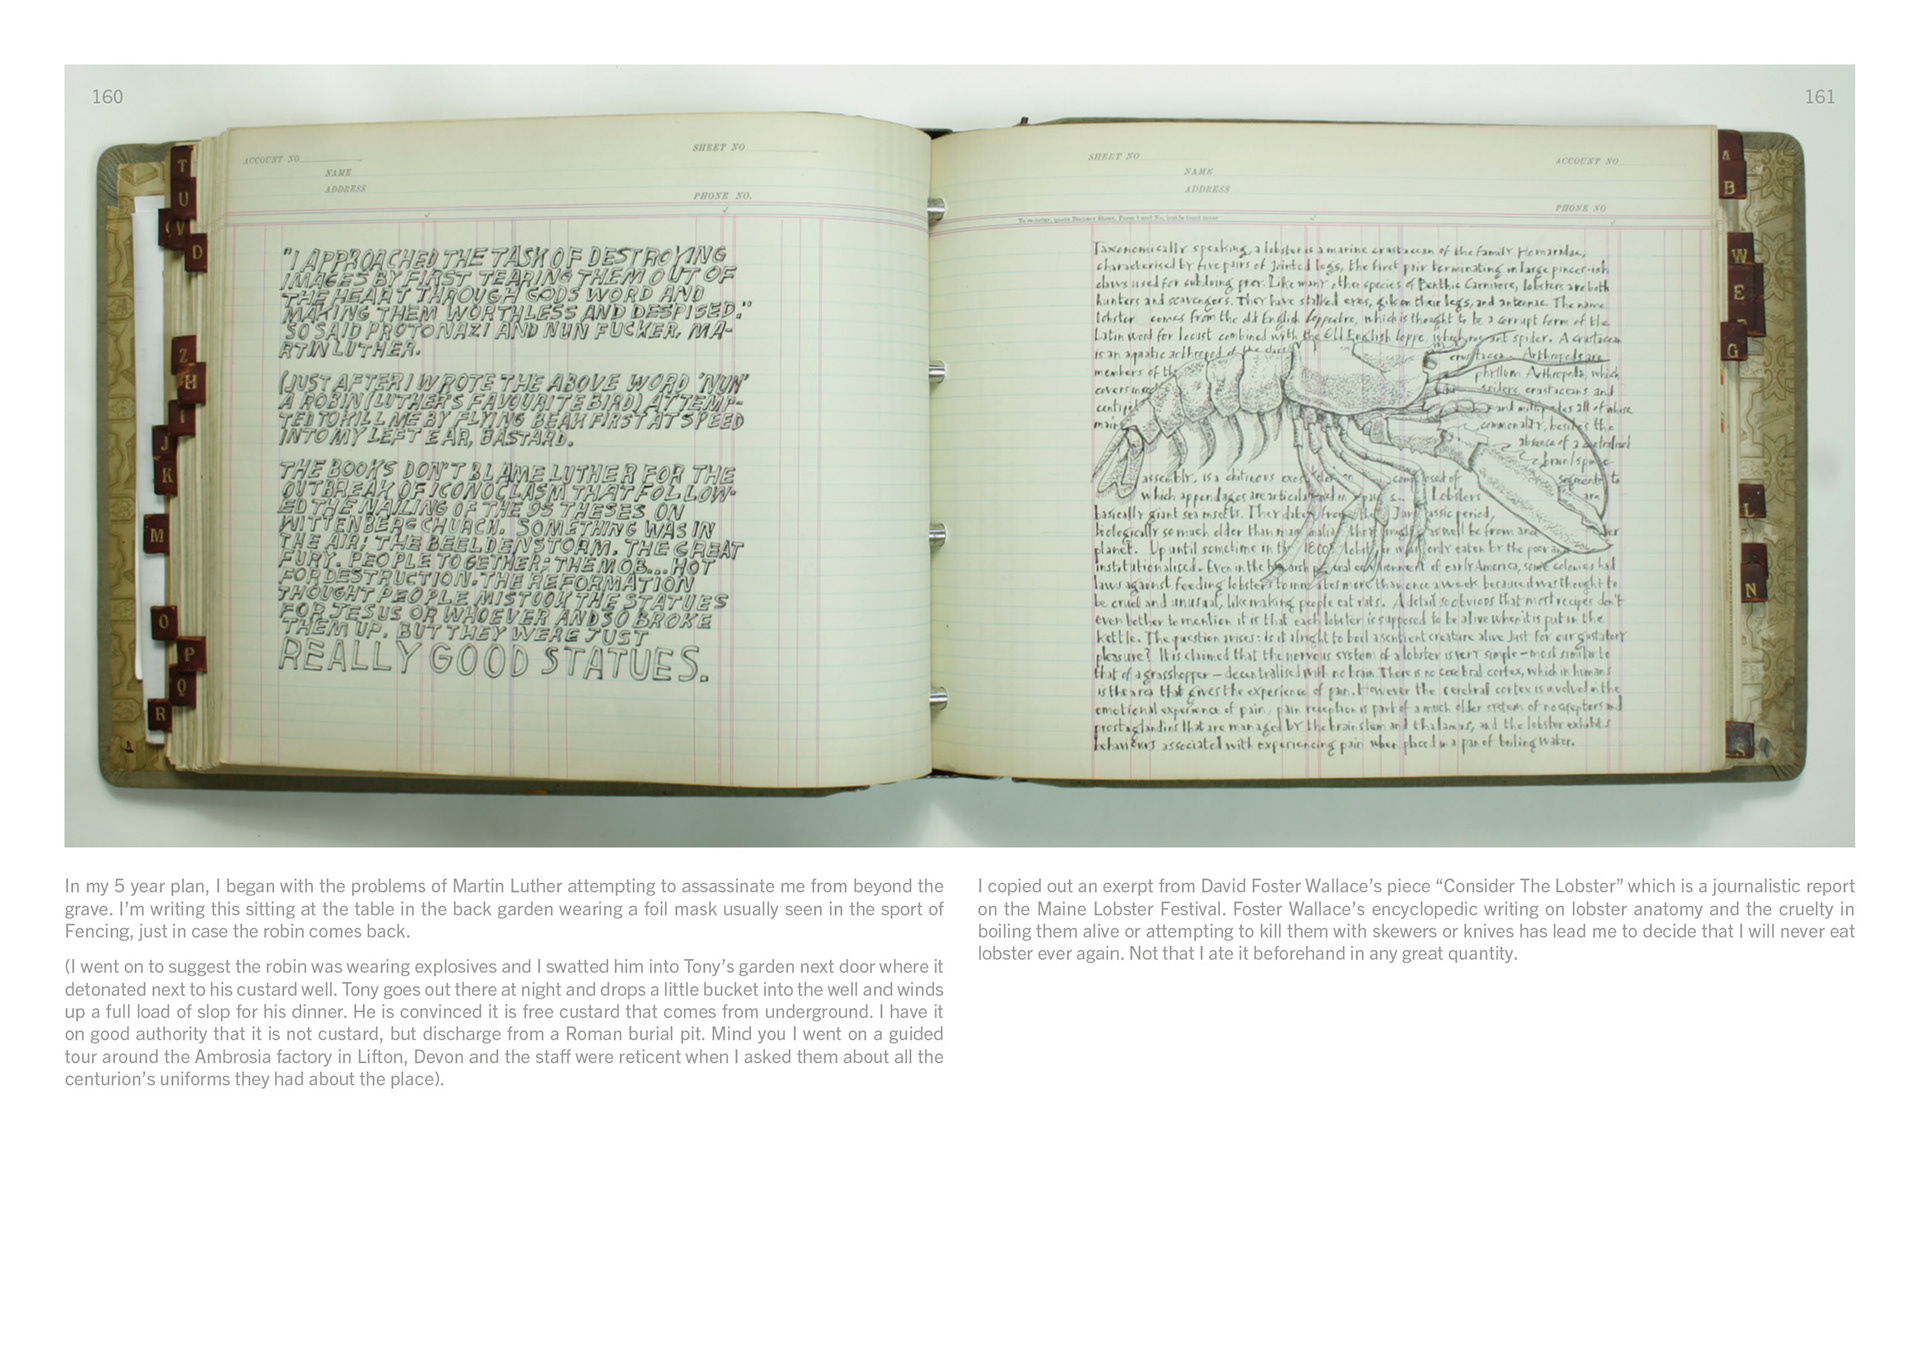 160
161
ACCOUNT NO
SHEET NO
NAME
ADDRESS
PHONE NO.
"I APPROACHED THE TASK OF DESTROYING
IMAGES BY FIRST TEARING THEM OUT OF
THE HEART THROUGH GODS WORD AND
MAKING THEM WORTHLESS AND DESPISED."
SO SAID PROTONAZI AND NUN FUCKER, MA-
RTIN LUTHER.
(JUST AFTER I WROTE THE ABOVE WORD 'NUN'
A ROBIN (LUTHER'S FAVOURITE BIRD) ATTEMP-
TED TO KILL ME BY FLYING BEAK FIRST AT SPEED
INTO MY LEFT EAR, BASTARD.
THE BOOKS DON'T BLAME LUTHER FOR THE
OUTBREAK OF ICONOCLASM THAT FOLLOW-
ED THE NAILING OF THE 95 THESES ON
WITTENBERG CHURCH. SOMETHING WAS IN
THE AIR; THE BEELDENSTORM. THE GREAT
FURY. PEOPLE TOGETHER; THE MOB... HOT
FOR DESTRUCTION. THE REFORMATION
THOUGHT PEOPLE MISTOOK THE STATUES
FOR JESUS OR WHOEVER AND SO BROKE
THEM UP. BUT THEY WERE JUST
REALLY GOOD STATUES.
T
U
V
D
Z
H
I
J
K
M
O
P
Q
R
SHEET NO
ACCOUNT NO
NAME
ADDRESS
PHONE NO
Taxonomically speaking, a lobster is a marine crustacean of the family Homaridae,
characterised by five pairs of jointed legs, the first pair terminating in large pincer-ish
claws used for subduing prey. Like many other species of Benthic Carnivore, lobsters are both
hunters and scavengers. They have stalked eyes, gils on their legs, and antennae. The name
lobster comes from the old English loppestre, which is thought to be a corrupt form of the
Latin word for locust combined with the Old English loppe, which meant spider. A crustacean
is an aquatic arthropod of the class crustacea. Arthropods are
members of the phyllum Arthropoda, which
covers insects spiders, crustaceans and
centipedes and millipedes all of whose
main commonality, besides the
absence of a centralised
brain/spine
assembly, is a chitinous exoskeleton composed of segments to
which appendages are articulated in pairs... Lobsters are
basically giant sea insects. They date from the Jurassic period,
biologically so much older than mammalia, they might as well be from another
planet. Up until sometime in the 1800s lobster was only eaten by the poor and
institutionalised. Even in the harsh penal environment of early America, some colonies had
laws against feeding lobsters to inmates more than once a week because it was thought to
be cruel and unusual, like making people eat rats. A detail so obvious that most recipes don't
even bother to mention it is that each lobster is supposed to be alive when it is put in the
kettle. The question arises: is it alright to boil a sentient creature alive just for our gustatory
pleasure? It is claimed that the nervous system of a lobster is very simple – most similar to
that of a grasshopper – decentralised with no brain. There is no cerebral cortex, which in humans
is the area that gives the experience of pain. However the cerebral cortex is involved in the
emotional experience of pain, pain reception is part of a much older system of nociceptors and
prostaglandins that are managed by the brain stem and thalamus, and the lobster exhibits
behaviours associated with experiencing pain when placed in a pan of boiling water.
A
B
W
E
G
L
N
S
In my 5 year plan, I began with the problems of Martin Luther attempting to assassinate me from beyond the
grave. I'm writing this sitting at the table in the back garden wearing a foil mask usually seen in the sport of
Fencing, just in case the robin comes back.
(I went on to suggest the robin was wearing explosives and I swatted him into Tony's garden next door where it
detonated next to his custard well. Tony goes out there at night and drops a little bucket into the well and winds
up a full load of slop for his dinner. He is convinced it is free custard that comes from underground. I have it
on good authority that it is not custard, but discharge from a Roman burial pit. Mind you I went on a guided
tour around the Ambrosia factory in Lifton, Devon and the staff were reticent when I asked them about all the
centurion's uniforms they had about the place).
I copied out an exerpt from David Foster Wallace's piece “Consider The Lobster” which is a journalistic report
on the Maine Lobster Festival. Foster Wallace's encyclopedic writing on lobster anatomy and the cruelty in
boiling them alive or attempting to kill them with skewers or knives has lead me to decide that I will never eat
lobster ever again. Not that I ate it beforehand in any great quantity.